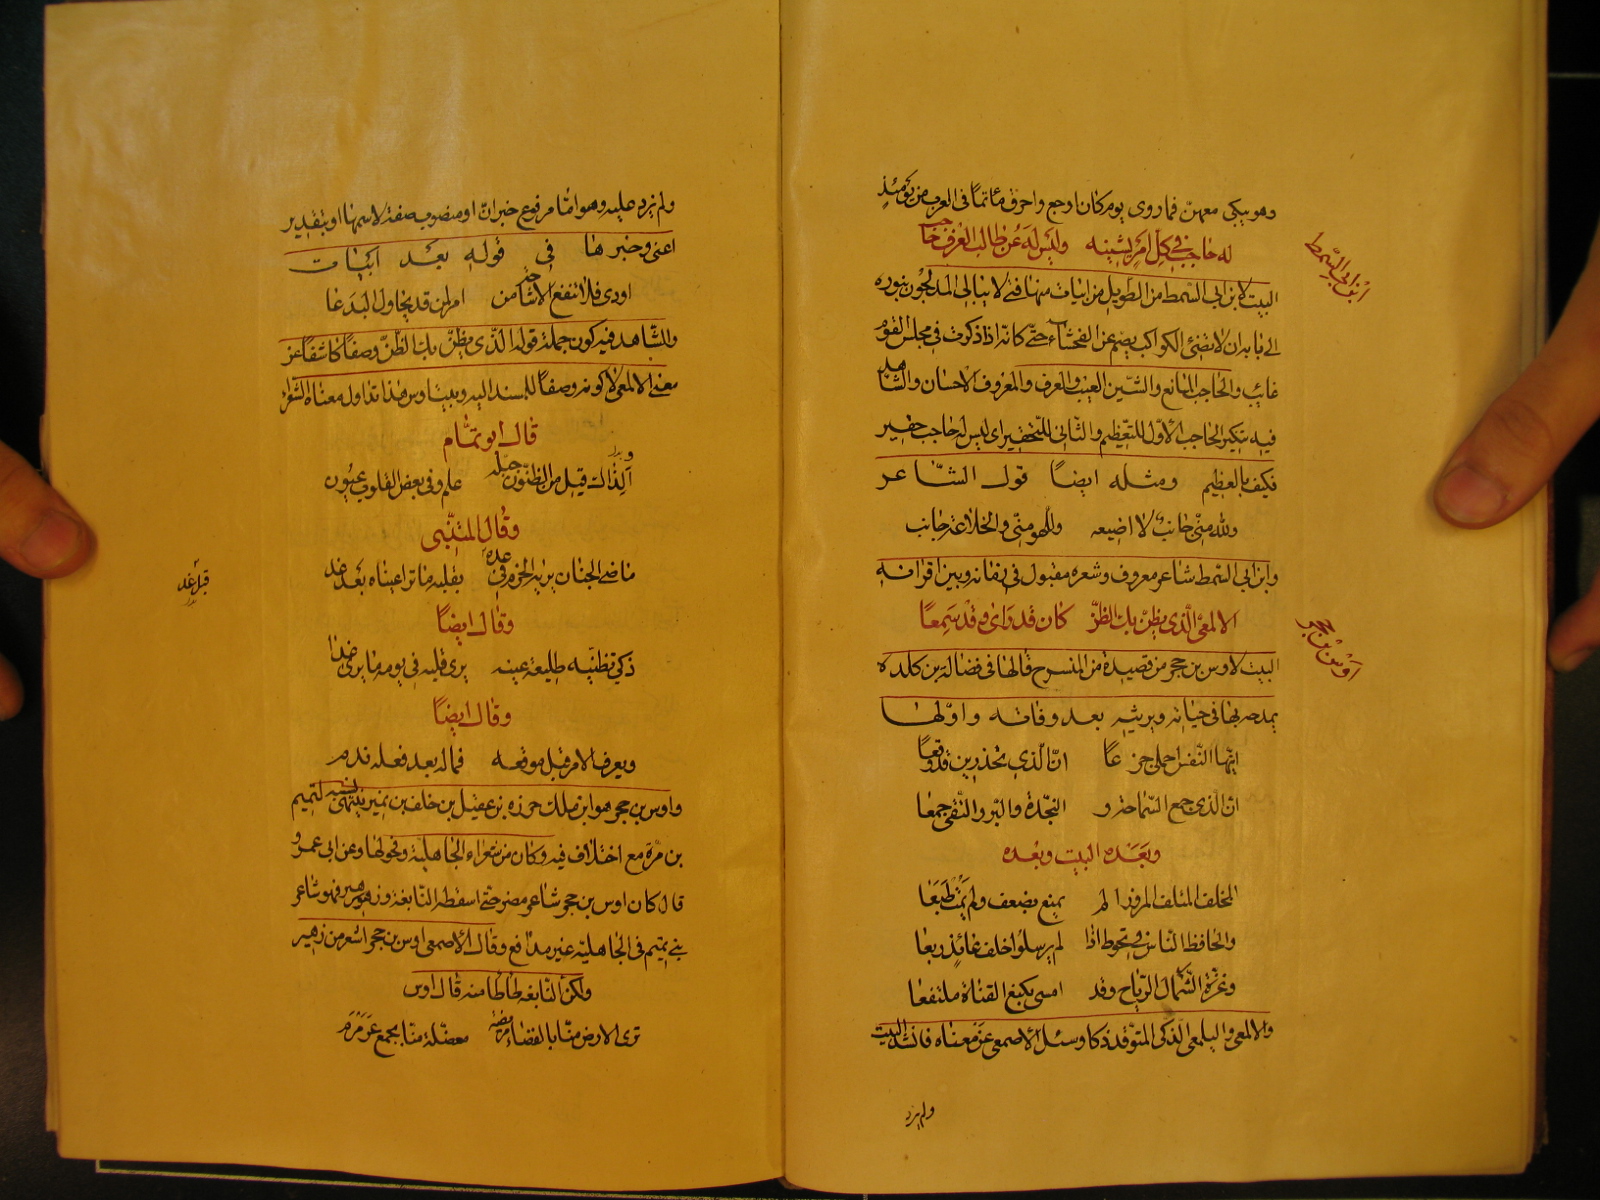 وهو يبكي معهن فما روى يوم كان اوجع واحرق مأتما في العرب من يومئذ
له حاجب في كل امر يشينه وليس له عن طالب العرف حاجب
ابن ابي السمط
البيت لابن ابي السمط من الطويل من ابيات منها فتى لا يبالي المدلجون بنوره
الى بابه ان لا تضئ الكواكب يصم عن الفحشاء حتى كانه اذا ذكرت في مجلس القوم
غائب والحاجب المانع والشين العيب والعرف والمعروف الاحسان والشاهد
فيه تنكير الحاجب الاول للتعظيم والثاني للتحقير اى ليس له حاجب حقير
فكيف بالعظيم ومثله ايضا قول الشاعر
ولله مني جانب لا اضيعه وللهو مني والخلاعة جانب
وابن ابي السمط شاعر معروف وشعره مقبول في زمانه وبين اقرانه
الالمعي الذي يظن بك الظن كان قد راى وقد سمعا
اوس بن حجر
البيت لاوس بن حجر من قصيدة من المنسرح قالها في فضالة بن كلدة
يمدحه بها في حياته ويرثيه بعد وفاته واولها
ايتها النفس اجملي جزعا ان الذي تحذرين قد وقعا
ان الذي جمع السماحة و النجدة والبر والتقى جمعا
وبعده البيت وبعده
المخلف المتلف المرزأ لم يمتع بضعف ولم يمت طبعا
والحافظ الناس في تحوط اذا لم يرسلوا خلف عائذ ربعا
وعزة الشمال الرياح وقد امسى كميع القناة ملتفعا
والالمعي والبلمعي الذكي المتوقد ذكا وسئل الاصمعي عن معناه فانشد البيت
ولم يزد
ولم يزد عليه وهو اما مرفوع خبر ان او منصوب صفة لاسمها او بتقدير
اعني وخبرها في قوله بعد ابيات
اودى فلا تنفع الاشاحة من امر لمن قد يحاول البدعا
والشاهد فيه كون جملة قوله الذي يظن بك الظن وصفا كاشفا عن
معنى الالمعي لا كونه وصفا للمسند اليه وبيت اوس هذا تداول معناه الشعراء
قال ابو تمام
ولذاك قيل من الظنون جبلة علم وفي بعض القلوب عيون
وقال المتنبي
ماضي الجنان يريه الحزم في غده بقلبه ما تراعيناه بعد غد
قبل غد
وقال ايضا
ذكي تظنيه طليعة عينه يرى قلبه في يومه ما يرى غدا
وقال ايضا
ويعرف الامر قبل موقعه فما له بعد فعله ندم
واوس بن حجر هو ابن ملك حمزه بن عقيل بن خلف بن نمير ينتهي نسبه لتميم
بن مرة مع اختلاف فيه وكان من شعراء الجاهلية وفحولها وعن ابي عمرو
قال كان اوس بن حجر شاعر مضر حتى اسقطه النابغة وزهير فهو شاعر
بني تميم في الجاهلية غير مدافع وقال الاصمعي اوس بن حجر اشعر من زهير
ولكن النابغة طأطأ منه قال اوس
ترى الارض منا بالفضاء مريضة معضلة منا بجمع عرمرم